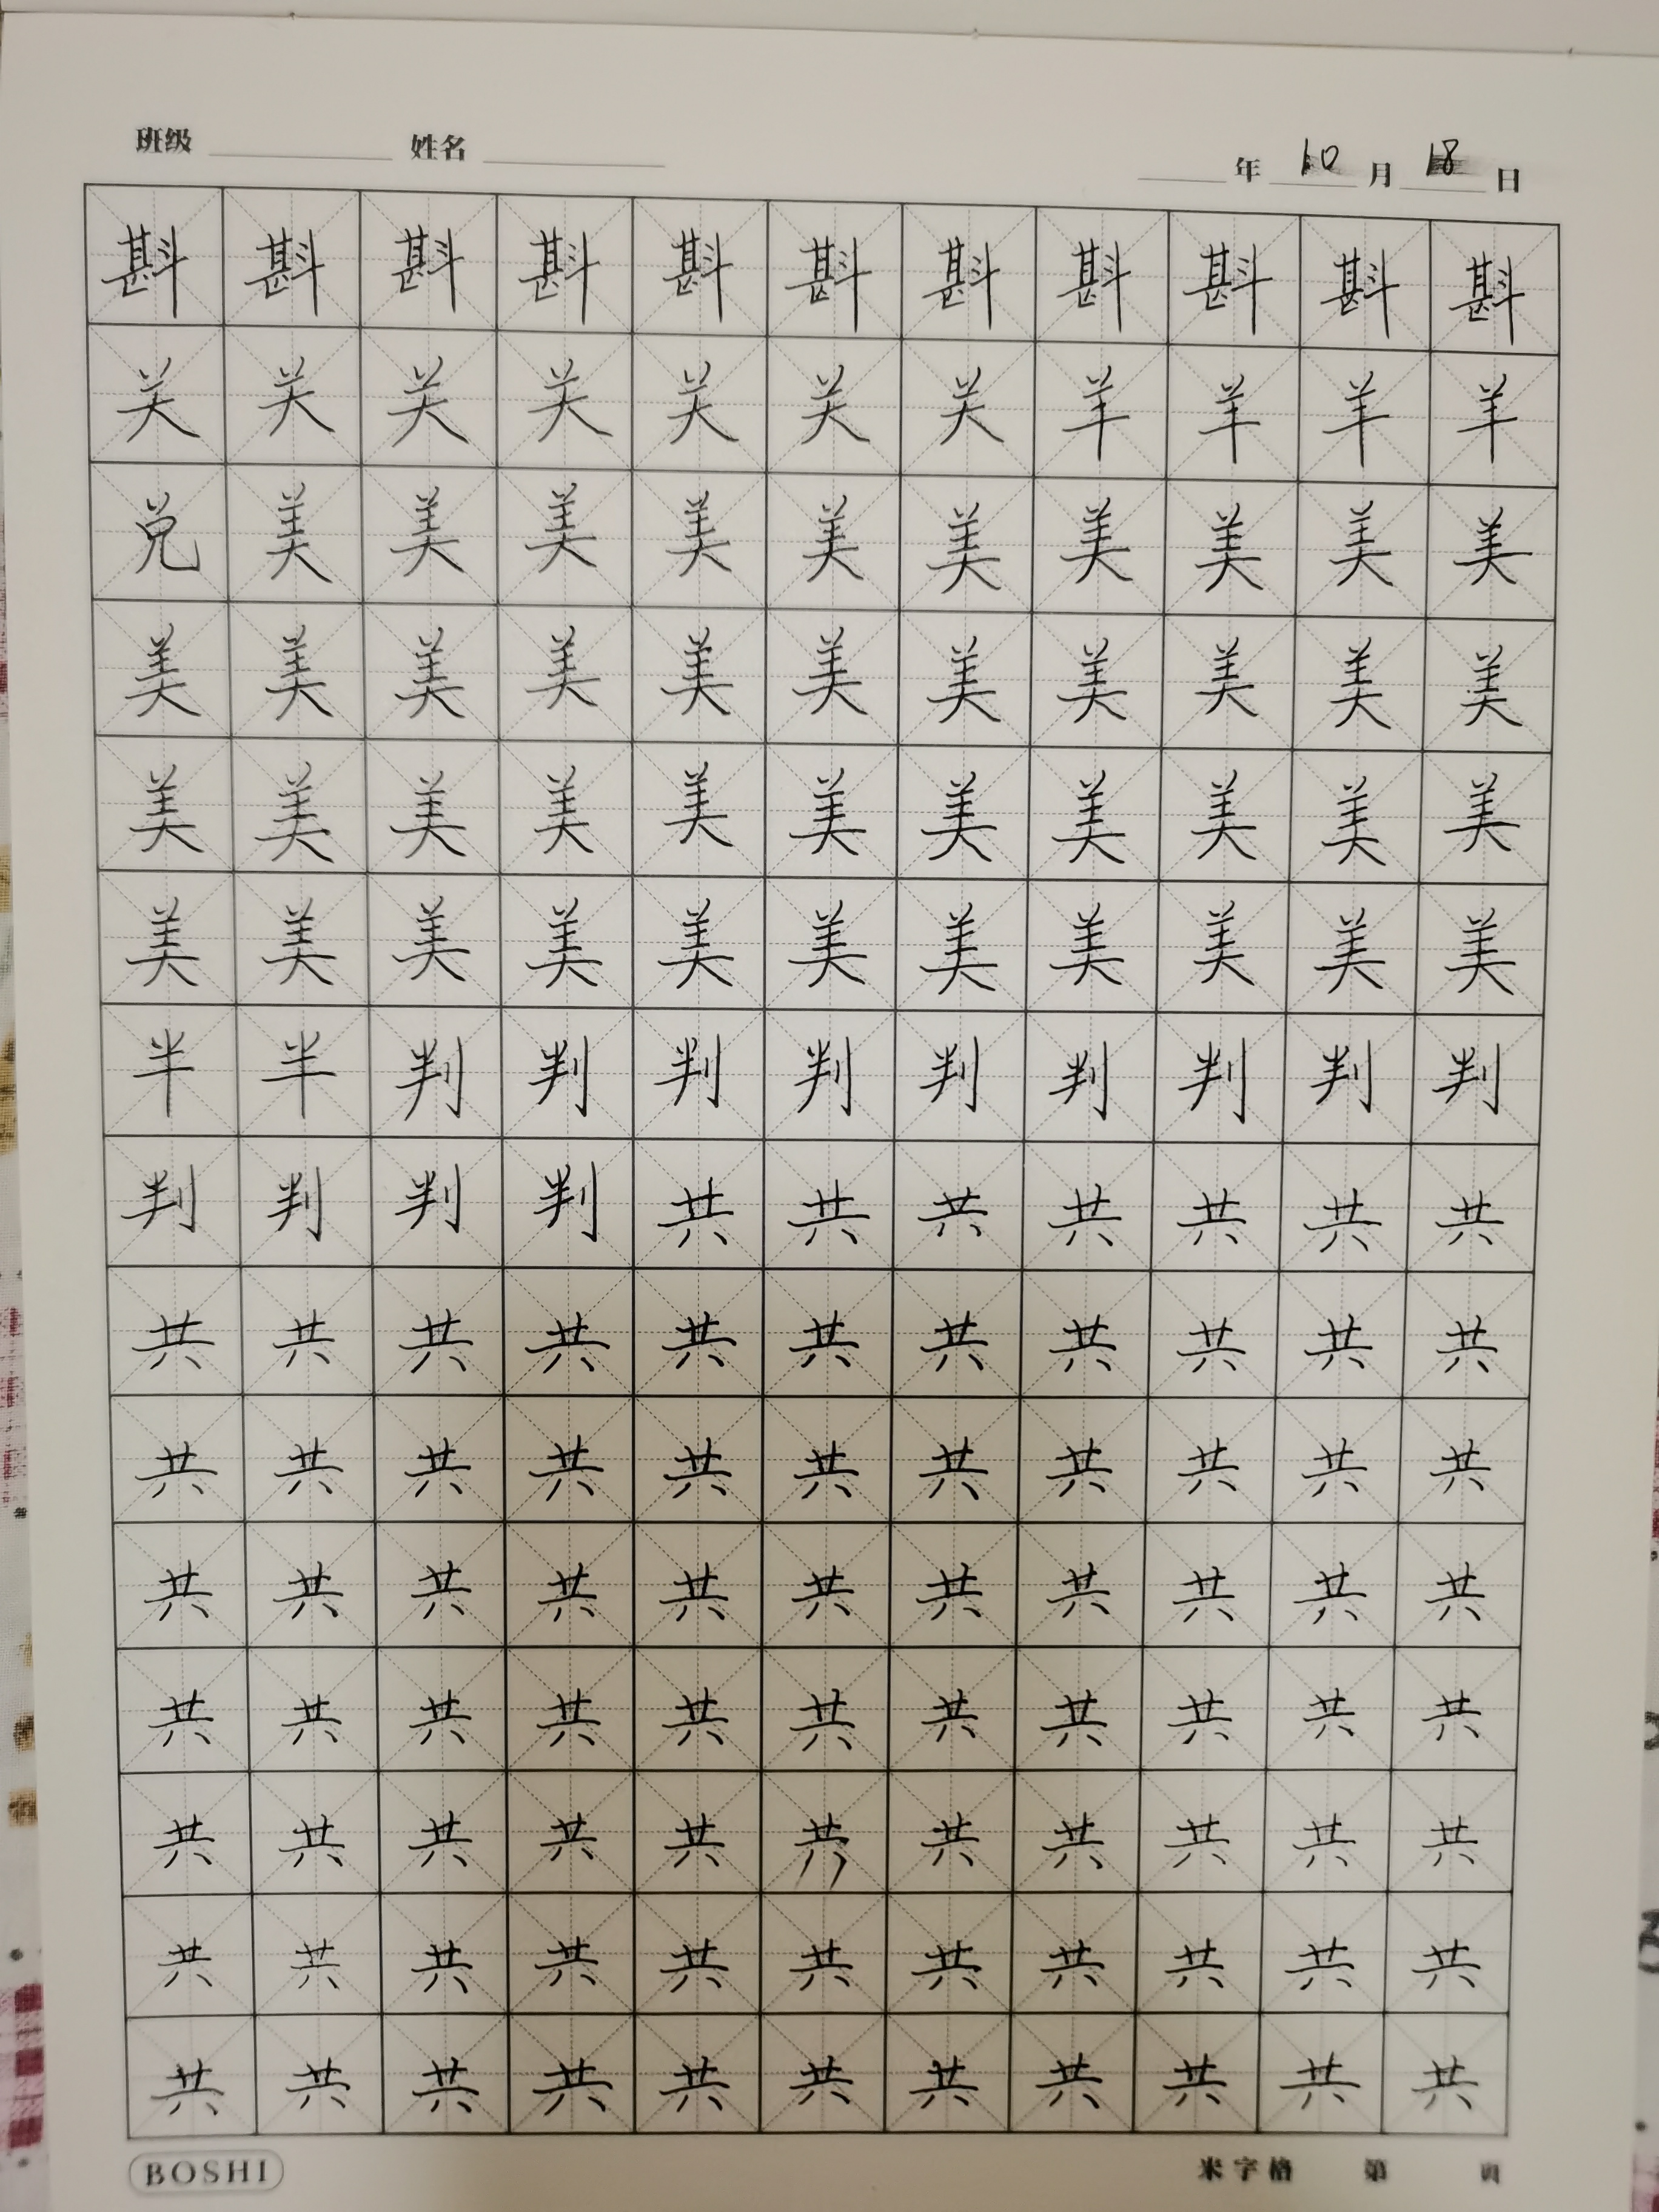 班级 姓名 年 10 月 18 日
斟 斟 斟 斟 斟 斟 斟 斟 斟 斟 斟
关 关 关 关 关 关 关 羊 羊 羊 羊
兑 美 美 美 美 美 美 美 美 美 美
美 美 美 美 美 美 美 美 美 美 美
美 美 美 美 美 美 美 美 美 美 美
美 美 美 美 美 美 美 美 美 美 美
半 半 判 判 判 判 判 判 判 判 判
判 判 判 判 共 共 共 共 共 共 共
共 共 共 共 共 共 共 共 共 共 共
共 共 共 共 共 共 共 共 共 共 共
共 共 共 共 共 共 共 共 共 共 共
共 共 共 共 共 共 共 共 共 共 共
共 共 共 共 共 共 共 共 共 共 共
共 共 共 共 共 共 共 共 共 共 共
共 共 共 共 共 共 共 共 共 共 共
BOSHI 米字格 第 页